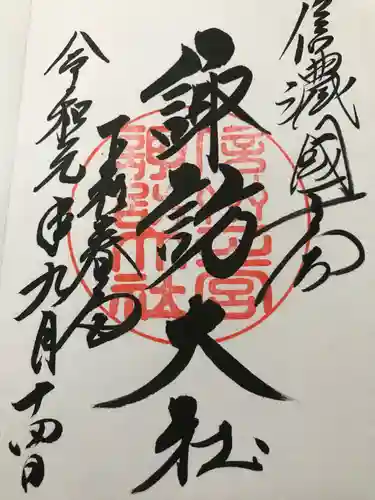 信濃國一之宮
諏訪大社
下社春宮
令和元年九月十四日